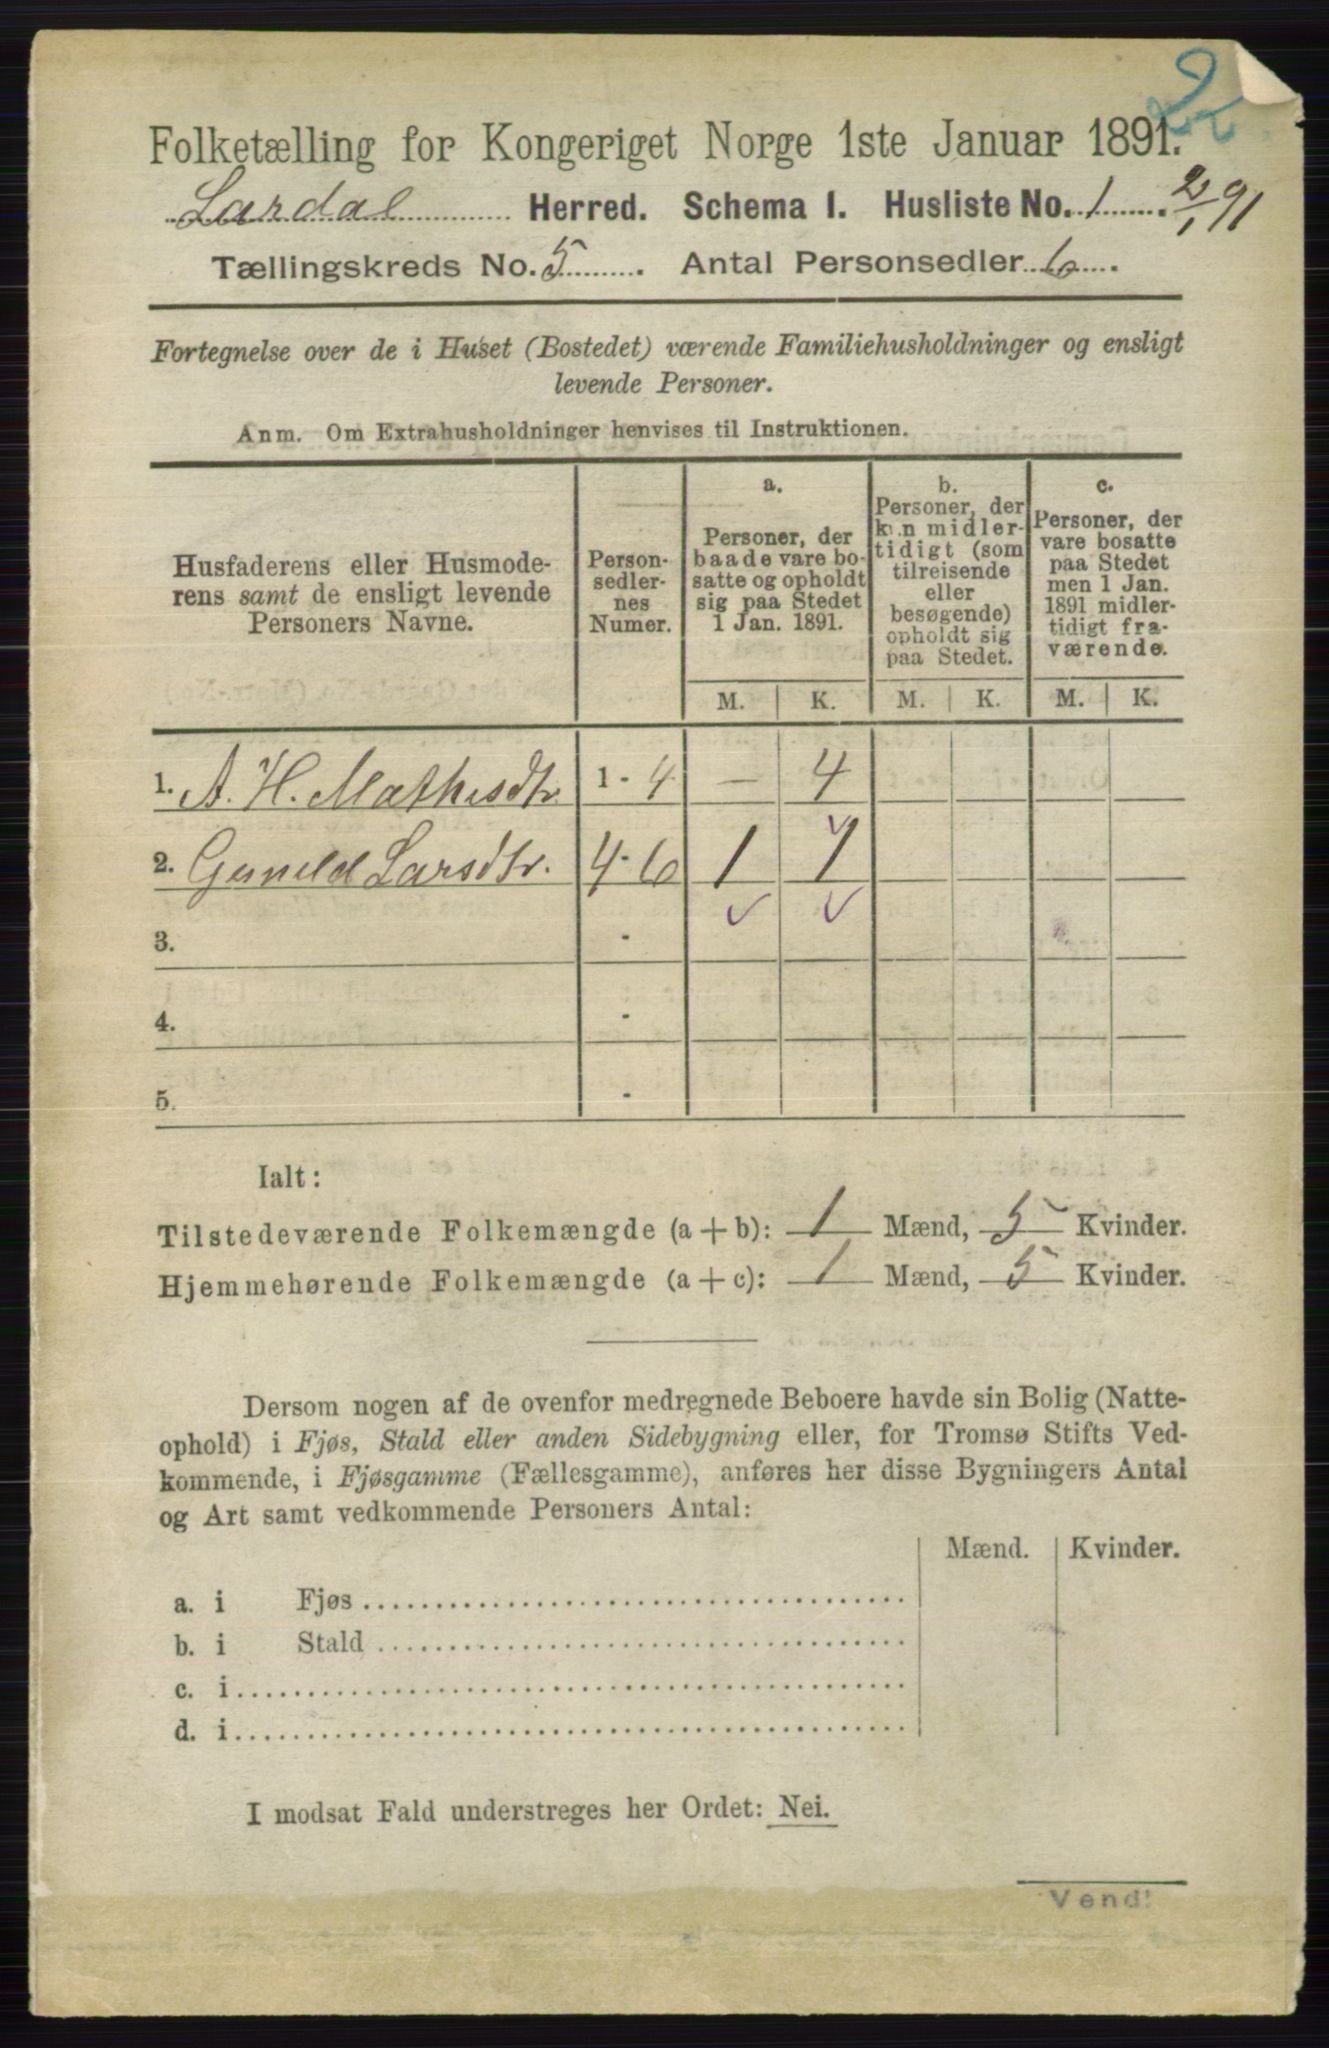 22
Folketælling for Kongeriget Norge 1ste Januar 1891.
Lardal Herred. Schema I. Husliste No. 1. 2/1 91
Tællingskreds No. 5. Antal Personsedler 6.
Fortegnelse over de i Huset (Bostedet) værende Familiehusholdninger og ensligt
levende Personer.
Anm. Om Extrahusholdninger henvises til Instruktionen.
Husfaderens eller Husmode-
rens samt de ensligt levende
Personers Navne.
Person-
sedler-
nes
Numer.
a.
Personer, der
baade vare bo-
satte og opholdt
sig paa Stedet
1 Jan. 1891.
b.
Personer, der
kun midler-
tidigt (som
tilreisende
eller
besøgende)
opholdt sig
paa Stedet.
c.
Personer, der
vare bosatte
paa Stedet
men 1 Jan.
1891 midler-
tidigt fra-
værende.
M. K. M. K. M. K.
1. A. H. Mathisdtr. 1 - 4 — 4
2. Guneld Larsdtr. 4 - 6 1 1
3. -
4. -
5. -
Ialt:
Tilstedeværende Folkemængde (a + b): 1 Mænd, 5 Kvinder.
Hjemmehørende Folkemængde (a + c): 1 Mænd, 5 Kvinder.
Dersom nogen af de ovenfor medregnede Beboere havde sin Bolig (Natte-
ophold) i Fjøs, Stald eller anden Sidebygning eller, for Tromsø Stifts Ved-
kommende, i Fjøsgamme (Fællesgamme), anføres her disse Bygningers Antal
og Art samt vedkommende Personers Antal:
Mænd. Kvinder.
a. i Fjøs
b. i Stald
c. i
d. i
I modsat Fald understreges her Ordet: Nei.
Vend!